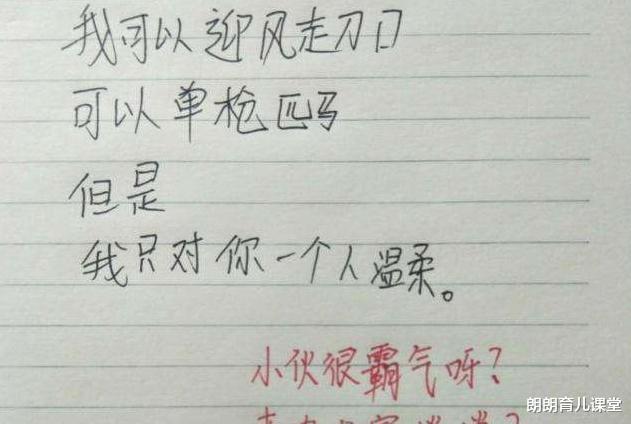 我可以迎风走刀口
可以单枪匹马
但是
我只对你一个人温柔。
小伙很霸气呀？
朗朗育儿课堂